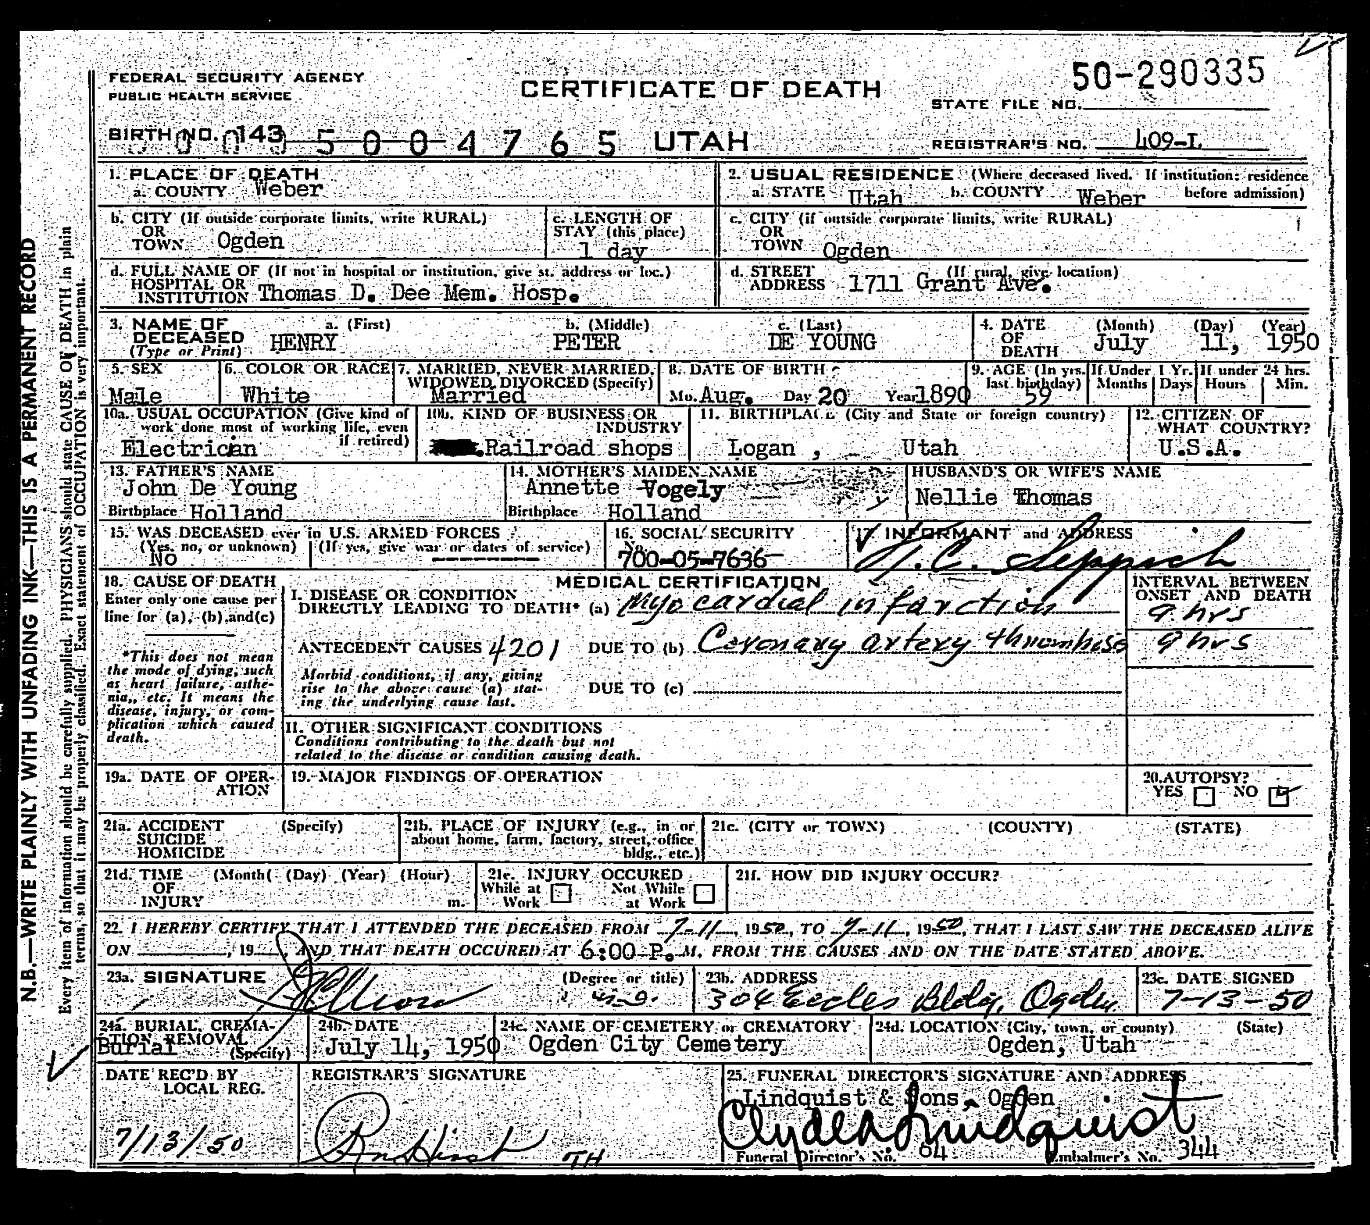 50-290335
FEDERAL SECURITY AGENCY
PUBLIC HEALTH SERVICE
CERTIFICATE OF DEATH
STATE FILE NO.
BIRTH NO. 143 5004765 UTAH
REGISTRAR'S NO. 409-L
1. PLACE OF DEATH
a. COUNTY Weber
2. USUAL RESIDENCE (Where deceased lived. If institution: residence before admission)
a. STATE Utah b. COUNTY Weber
b. CITY (If outside corporate limits, write RURAL)
OR TOWN Ogden
c. LENGTH OF STAY (this place)
1 day
c. CITY (if outside corporate limits, write RURAL)
OR TOWN Ogden
d. FULL NAME OF (If not in hospital or institution, give st. address or loc.)
HOSPITAL OR INSTITUTION Thomas D. Dee Mem. Hosp.
d. STREET ADDRESS (If rural, give location)
1711 Grant Ave.
3. NAME OF DECEASED (Type or Print)
a. (First) b. (Middle) c. (Last)
HENRY PETER DE YOUNG
4. DATE OF DEATH (Month) (Day) (Year)
July 11, 1950
5. SEX
Male
6. COLOR OR RACE
White
7. MARRIED, NEVER MARRIED, WIDOWED, DIVORCED (Specify)
Married
8. DATE OF BIRTH
Mo. Aug. Day 20 Year 1890
9. AGE (In yrs. last birthday)
59
If Under 1 Yr. Months Days
If under 24 hrs. Hours Min.
10a. USUAL OCCUPATION (Give kind of work done most of working life, even if retired)
Electrician
10b. KIND OF BUSINESS OR INDUSTRY
Railroad shops
11. BIRTHPLACE (City and State or foreign country)
Logan , Utah
12. CITIZEN OF WHAT COUNTRY?
U.S.A.
13. FATHER'S NAME
John De Young
Birthplace Holland
14. MOTHER'S MAIDEN NAME
Annette Vogely
Birthplace Holland
HUSBAND'S OR WIFE'S NAME
Nellie Thomas
15. WAS DECEASED ever in U.S. ARMED FORCES
(Yes, no, or unknown) (If yes, give war or dates of service)
No
16. SOCIAL SECURITY No.
700-05-7636
17. INFORMANT and ADDRESS
18. CAUSE OF DEATH
Enter only one cause per line for (a), (b), and (c)
*This does not mean the mode of dying, such as heart failure, asthenia, etc. It means the disease, injury, or complication which caused death.
MEDICAL CERTIFICATION
I. DISEASE OR CONDITION DIRECTLY LEADING TO DEATH* (a) Myocardial infarction
INTERVAL BETWEEN ONSET AND DEATH
9 hrs
ANTECEDENT CAUSES 4201 DUE TO (b) Coronary artery thrombosis
9 hrs
Morbid conditions, if any, giving rise to the above cause (a) stating the underlying cause last.
DUE TO (c)
II. OTHER SIGNIFICANT CONDITIONS
Conditions contributing to the death but not related to the disease or condition causing death.
19a. DATE OF OPERATION
19. MAJOR FINDINGS OF OPERATION
20. AUTOPSY?
YES NO
21a. ACCIDENT SUICIDE HOMICIDE (Specify)
21b. PLACE OF INJURY (e.g., in or about home, farm, factory, street, office bldg., etc.)
21c. (CITY or TOWN) (COUNTY) (STATE)
21d. TIME OF INJURY (Month( (Day) (Year) (Hour) m.
21e. INJURY OCCURED
While at Work Not While at Work
21f. HOW DID INJURY OCCUR?
22. I HEREBY CERTIFY THAT I ATTENDED THE DECEASED FROM 7-11, 1950, TO 7-11, 1950, THAT I LAST SAW THE DECEASED ALIVE
ON , 19 , AND THAT DEATH OCCURED AT 6:00 P. M, FROM THE CAUSES AND ON THE DATE STATED ABOVE.
23a. SIGNATURE (Degree or title)
M.D.
23b. ADDRESS
304 Eccles Bldg. Ogden
23c. DATE SIGNED
7-13-50
24a. BURIAL, CREMATION, REMOVAL (Specify)
Burial
24b. DATE
July 14, 1950
24c. NAME OF CEMETERY or CREMATORY
Ogden City Cemetery
24d. LOCATION (City, town, or county) (State)
Ogden, Utah
DATE REC'D BY LOCAL REG.
7/13/50
REGISTRAR'S SIGNATURE
TH
25. FUNERAL DIRECTOR'S SIGNATURE AND ADDRESS
Lindquist & Sons, Ogden
Clyde A Lindquist
Funeral Director's No. 64 Embalmer's No. 344
N.B.—WRITE PLAINLY WITH UNFADING INK—THIS IS A PERMANENT RECORD
Every item of information should be carefully supplied. PHYSICIANS should state CAUSE OF DEATH in plain
terms, so that it may be properly classified. Exact statement of OCCUPATION is very important.